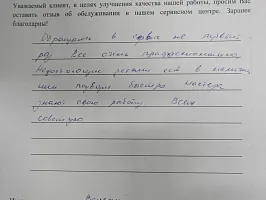 Уважаемый клиент, в целях улучшения качества нашей работы, просим Вас
оставить отзыв об обслуживании в нашем сервисном центре. Заранее
благодарны!
Обращаюсь в сервис не первый
раз Все очень профессионально
Недостающие детали есть в наличии
или подвозят быстро Мастера
знают свою работу Всем
советую